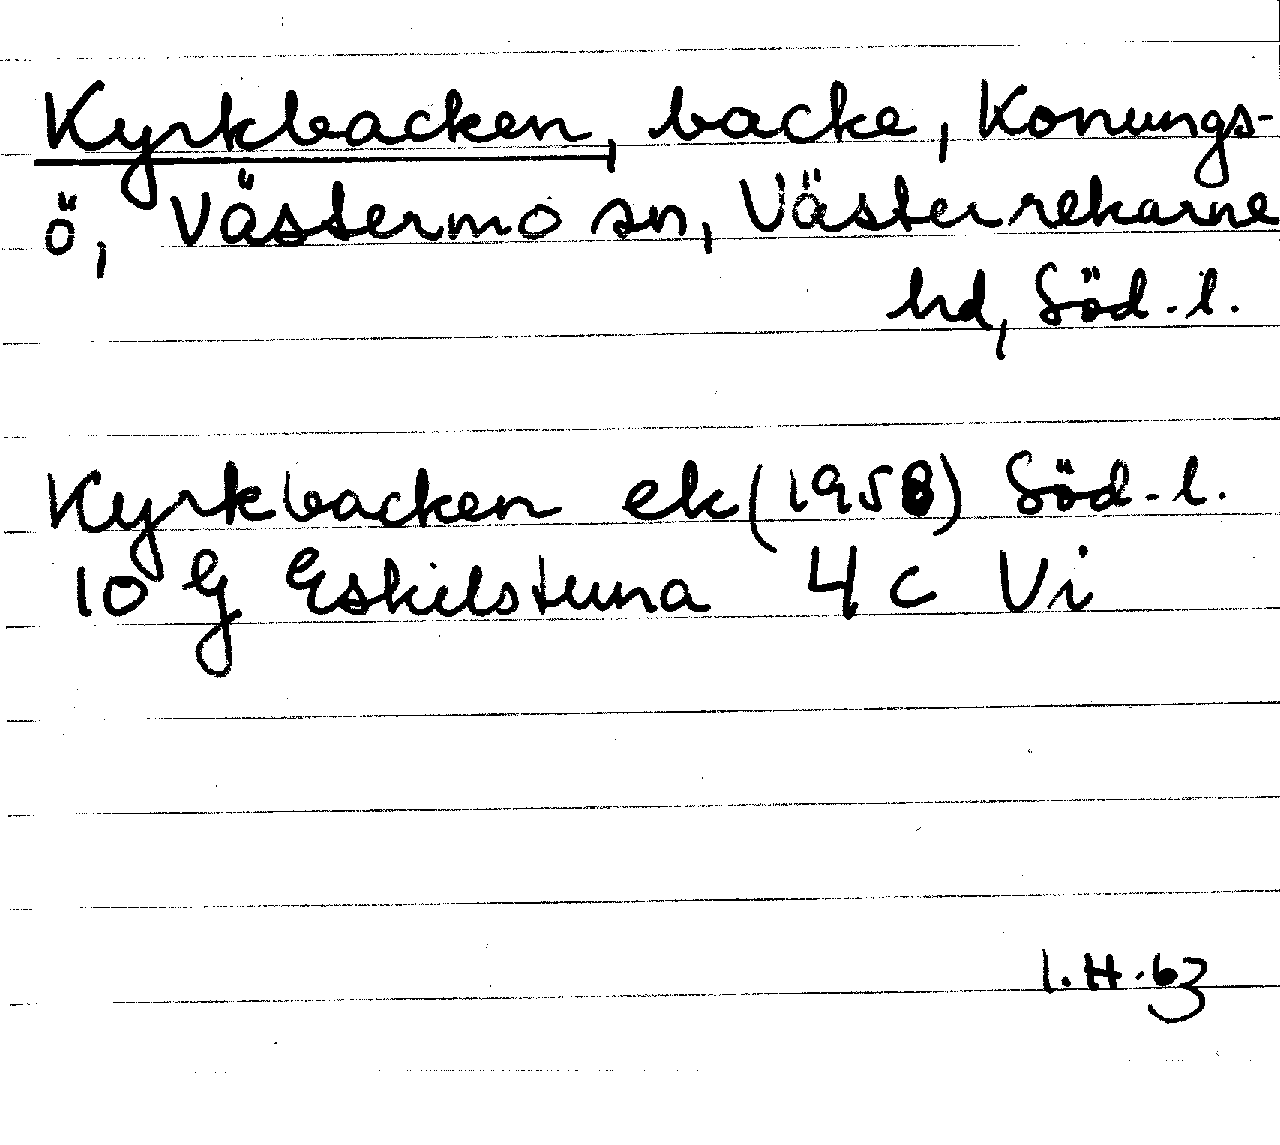 Kyrkbacken, backe, Konungs-
ö, Västermo sn, Västerrekarne
hd, Söd.l.
Kyrkbacken ek (1958) Söd.l.
10 G Eskilstuna 4 c Vi
I.H.63